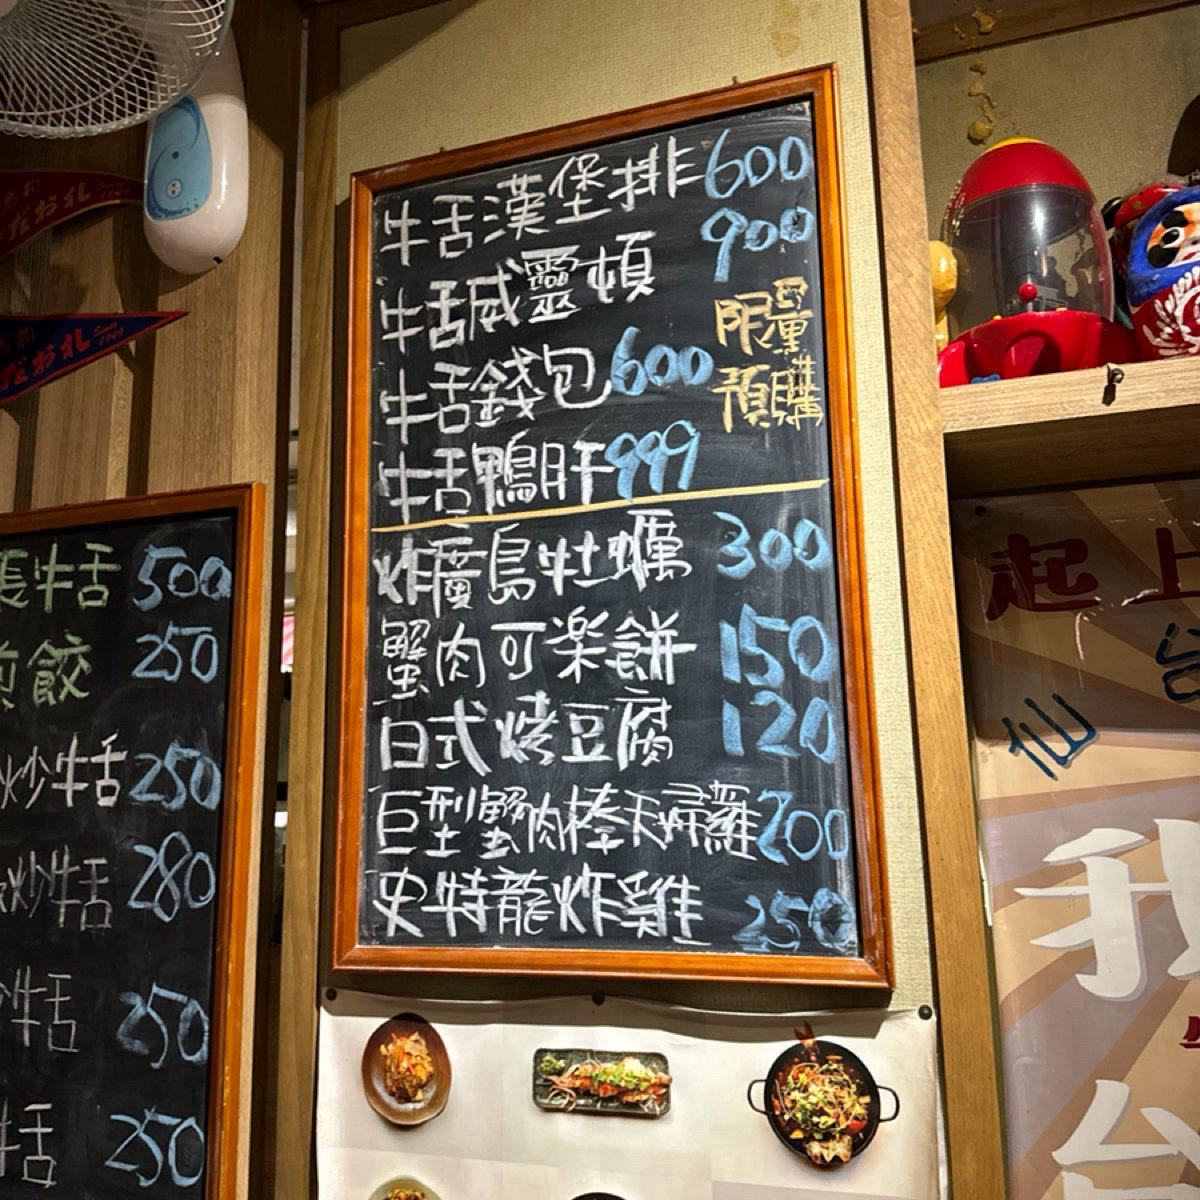 牛舌漢堡排 600
牛舌威靈頓 900
牛舌錢包 600
牛舌鴨肝 999
限量
預購
炸廣島牡蠣 300
蟹肉可楽餅 150
日式烤豆腐 120
巨型蟹肉棒天婦羅 200
史特龍炸雞 250
牛舌 500
煎餃 250
炒牛舌 250
炒牛舌 280
牛舌 250
牛舌 250
だお礼
Since 1949
だお礼
起上
仙台
我